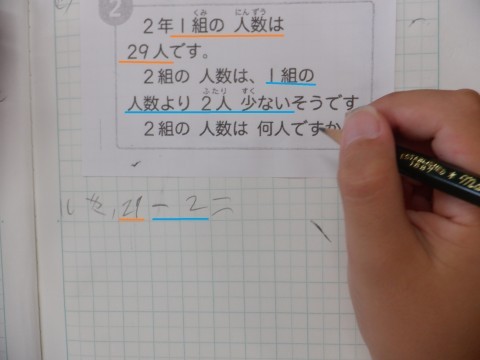 2
2年1組の 人数は
29人です。
2組の 人数は、1組の
人数より 2人 少ないそうです
2組の 人数は 何人ですか
しき、29－2＝